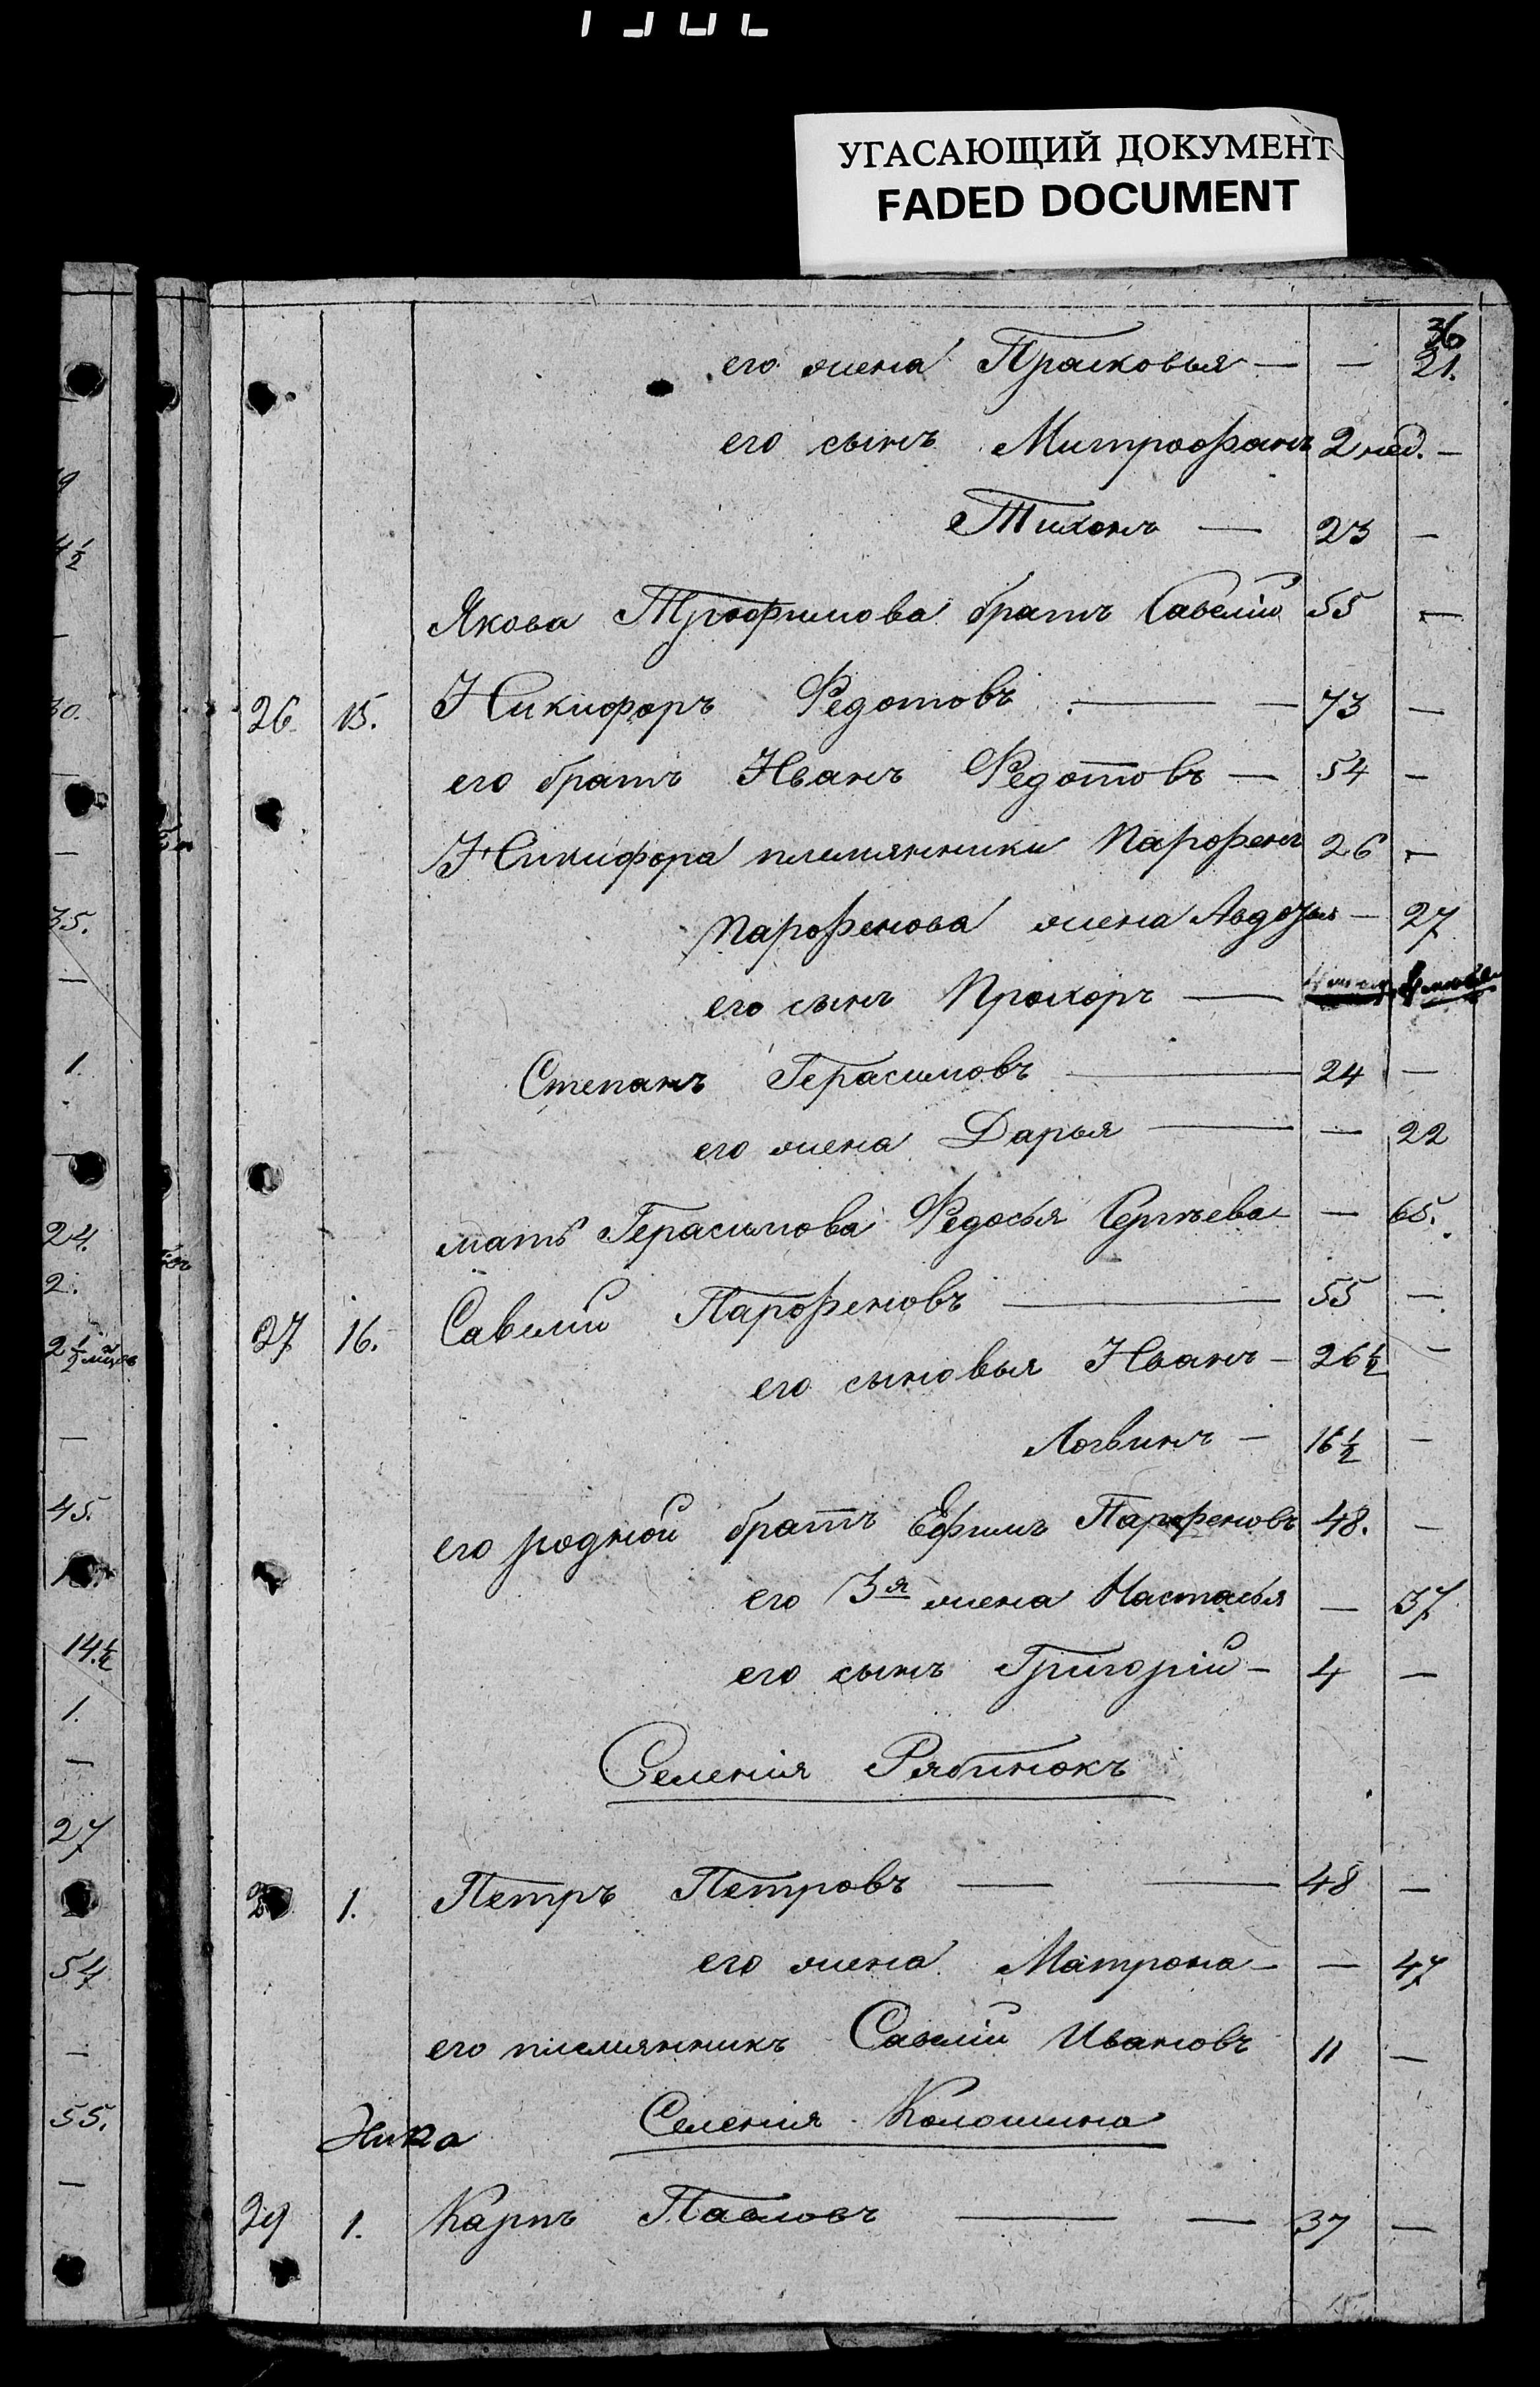 УГАСАЮЩИЙ ДОКУМЕНТ
FADED DOCUMENT
36
его жена Прасковья — — 21.
его сынъ Митрофанъ 2 нед. —
Тихонъ — 23 —
Якова Трофимова братъ Савелій 55 —
26 15. Никифоръ Федотовъ — — 73 —
его братъ Иванъ Федотовъ — 54 —
Никифора племянники Парфенъ 26 —
Парфенова жена Авдотья — 27
его сынъ Прохоръ —
Степанъ Герасимовъ — 24 —
его жена Дарья — — 22
мать Герасимова Федосья Сергѣева — 65.
27 16. Савелій Парфеновъ — 55 —
его сыновья Иванъ — 26 1/2 —
Логвинъ — 16 1/2 —
его родной братъ Ефимъ Парфеновъ 48. —
его 3я жена Настасья — 37
его сынъ Григорій — 4 —
Селенія Рябинокъ
1. Петръ Петровъ — — 48 —
его жена Матрона — — 47
его племянникъ Савелій Ивановъ 11 —
Селенія Колошина
29 1. Карпъ Павловъ — — 37 —
19
4 1/2
30.
35.
1.
24.
2.
2 1/2
45.
14. 1/2
1.
27
54
55.